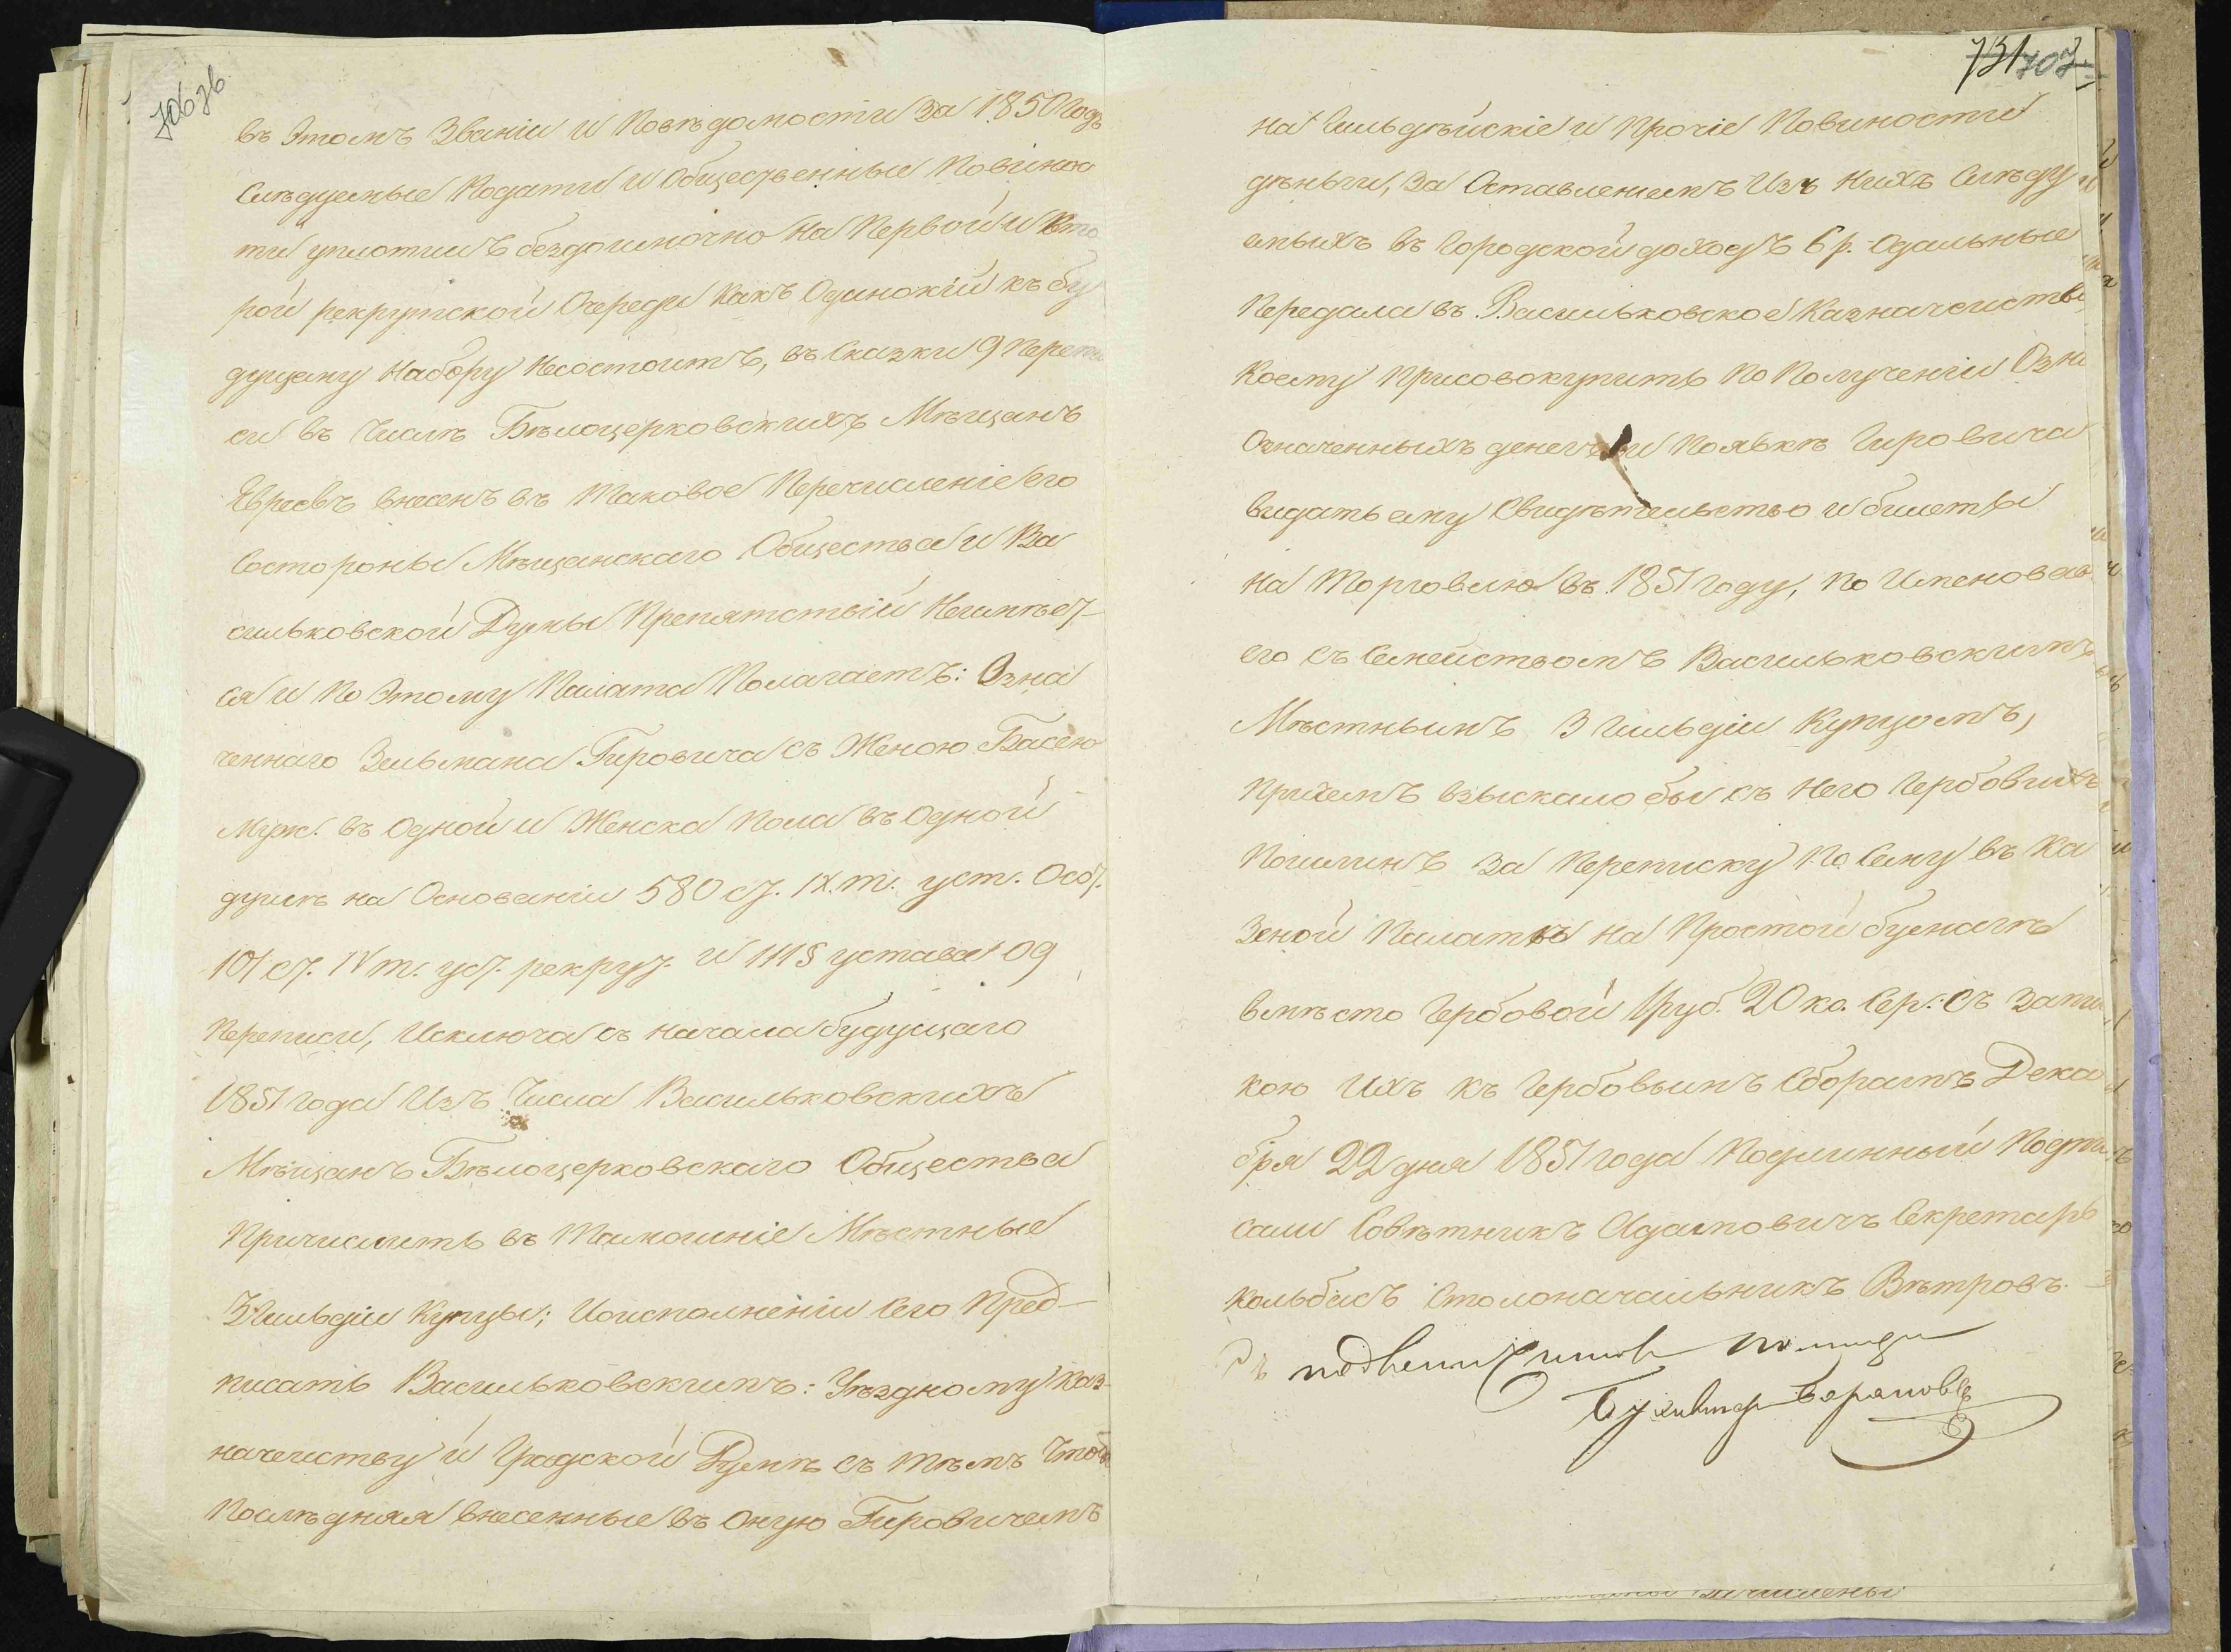 706 об
въ Этомъ Званіи и Повѣдомости За 1850 Годъ
Слѣдуемые Подати и Общественные Повинос
ти уплотилъ бездоимочно На Первой и Вто
рой рекрутской Очереди Какъ Одинокій къ бу
дущему Набору Несостоитъ, въ Сказки 9 Переп
си въ Числѣ Бѣлоцерковскихъ Мѣщанъ
Евреевъ внесенъ въ Таковое Перечисленіе Его
Состороны Мѣщанскаго Общества и Ва
сильковской Думы Препятствій Неимѣет
ся и По Этому Палата Полагаетъ: Озна
ченнаго Зельмана Гировича съ Женою Басею
Муж. въ Одной и Женска Пола въ Одной
душѣ на Основаніи 580 ст. IX. т. уст. Особ.
101 ст. IV т. уст. рекрут. и 111 § устава О 9
Переписи, Исключа съ начала будущаго
1851 года Изъ Числа Васильковскихъ
Мѣщанъ Бѣлоцерковскаго Общества
Причислить въ Тамошніе Мѣстные
3 Гильдіи Купцы; Иоисполненіи Сего Пред-
писать Васильковскимъ: Уѣздному Каз-
начейству и Градской Думѣ съ тѣмъ Чтобы
Послѣдняя внесенные въ Оную Гировичемъ
731 707
На Гильдѣйскіе и Прочіе Повиности
дѣньги, За Оставленіемъ Изъ Нихъ Слѣду
емыхъ въ Городской доходъ 6 р. Одальные
Передала въ Васильковское Казначейство
Коему Присовокупить По Полученіи Озна
Означенныхъ денегъ и Появкѣ Гировича
видать ему Свидѣтельство и билеты
на Торговлю въ 1851 году, По Именовав
его съ Семействомъ Васильковскимъ
Мѣстнымъ 3 Гильдіи Купцомъ,
Причемъ взыскало бы съ Него Гербовихъ
Пошлинъ За Переписку По Сему въ Ка
Зеной Палаткы на Простой бумагѣ
вмѣсто Гербовой 1 руб. 20 ко. Сер.: съ Запис
кою Ихъ къ Гербовымъ Сборамъ Дека
бря 22 дня 1851 года Подлинный Подпи
сали Совѣтникъ Адамовичъ Секретарь
Кольбасъ Столоначальникъ Вѣтровъ.
Съ подлиннымъ
Бухгалтеръ Барановъ